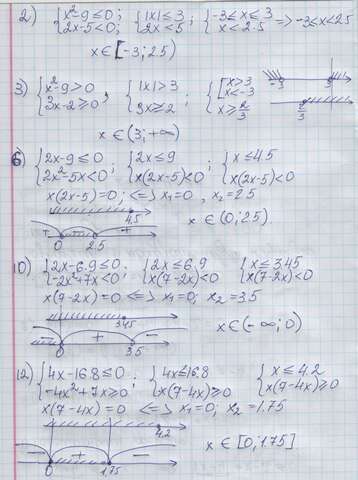 2) { x²-9≤0; 2x-5<0; { |x|≤3; 2x<5; { -3≤x≤3; x<2.5 => -3≤x<2.5
x∈[-3;2.5)
3) { x²-9>0; 3x-2≥0, { |x|>3; 3x≥2; { [ x>3; x<-3; x≥2/3
-3 3
2/3
x∈(3;+∞)
6) { 2x-9≤0; 2x²-5x<0; { 2x≤9; x(2x-5)<0; { x≤4.5; x(2x-5)<0
x(2x-5)=0; <=> x₁=0, x₂=2.5
4.5
+ - +
0 2.5
x∈(0;2.5)
10) { 2x-6.9≤0; -2x²+7x<0; { 2x≤6.9; x(7-2x)<0 { x≤3.45; x(7-2x)<0
x(7-2x)=0 <=> x₁=0; x₂=3.5
3.45
- + -
0 3.5
x∈(-∞;0)
12) { 4x-16.8≤0; -4x²+7x≥0; { 4x≤16.8; x(7-4x)≥0 { x≤4.2; x(7-4x)≥0
x(7-4x)=0 <=> x₁=0; x₂=1.75
4.2
- + -
0 1.75
x∈[0;1.75]